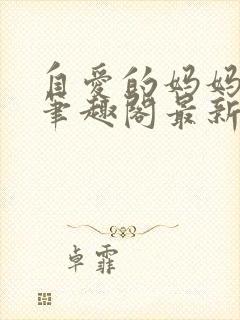 自爱的妈妈
笔趣阁最新
卓霏